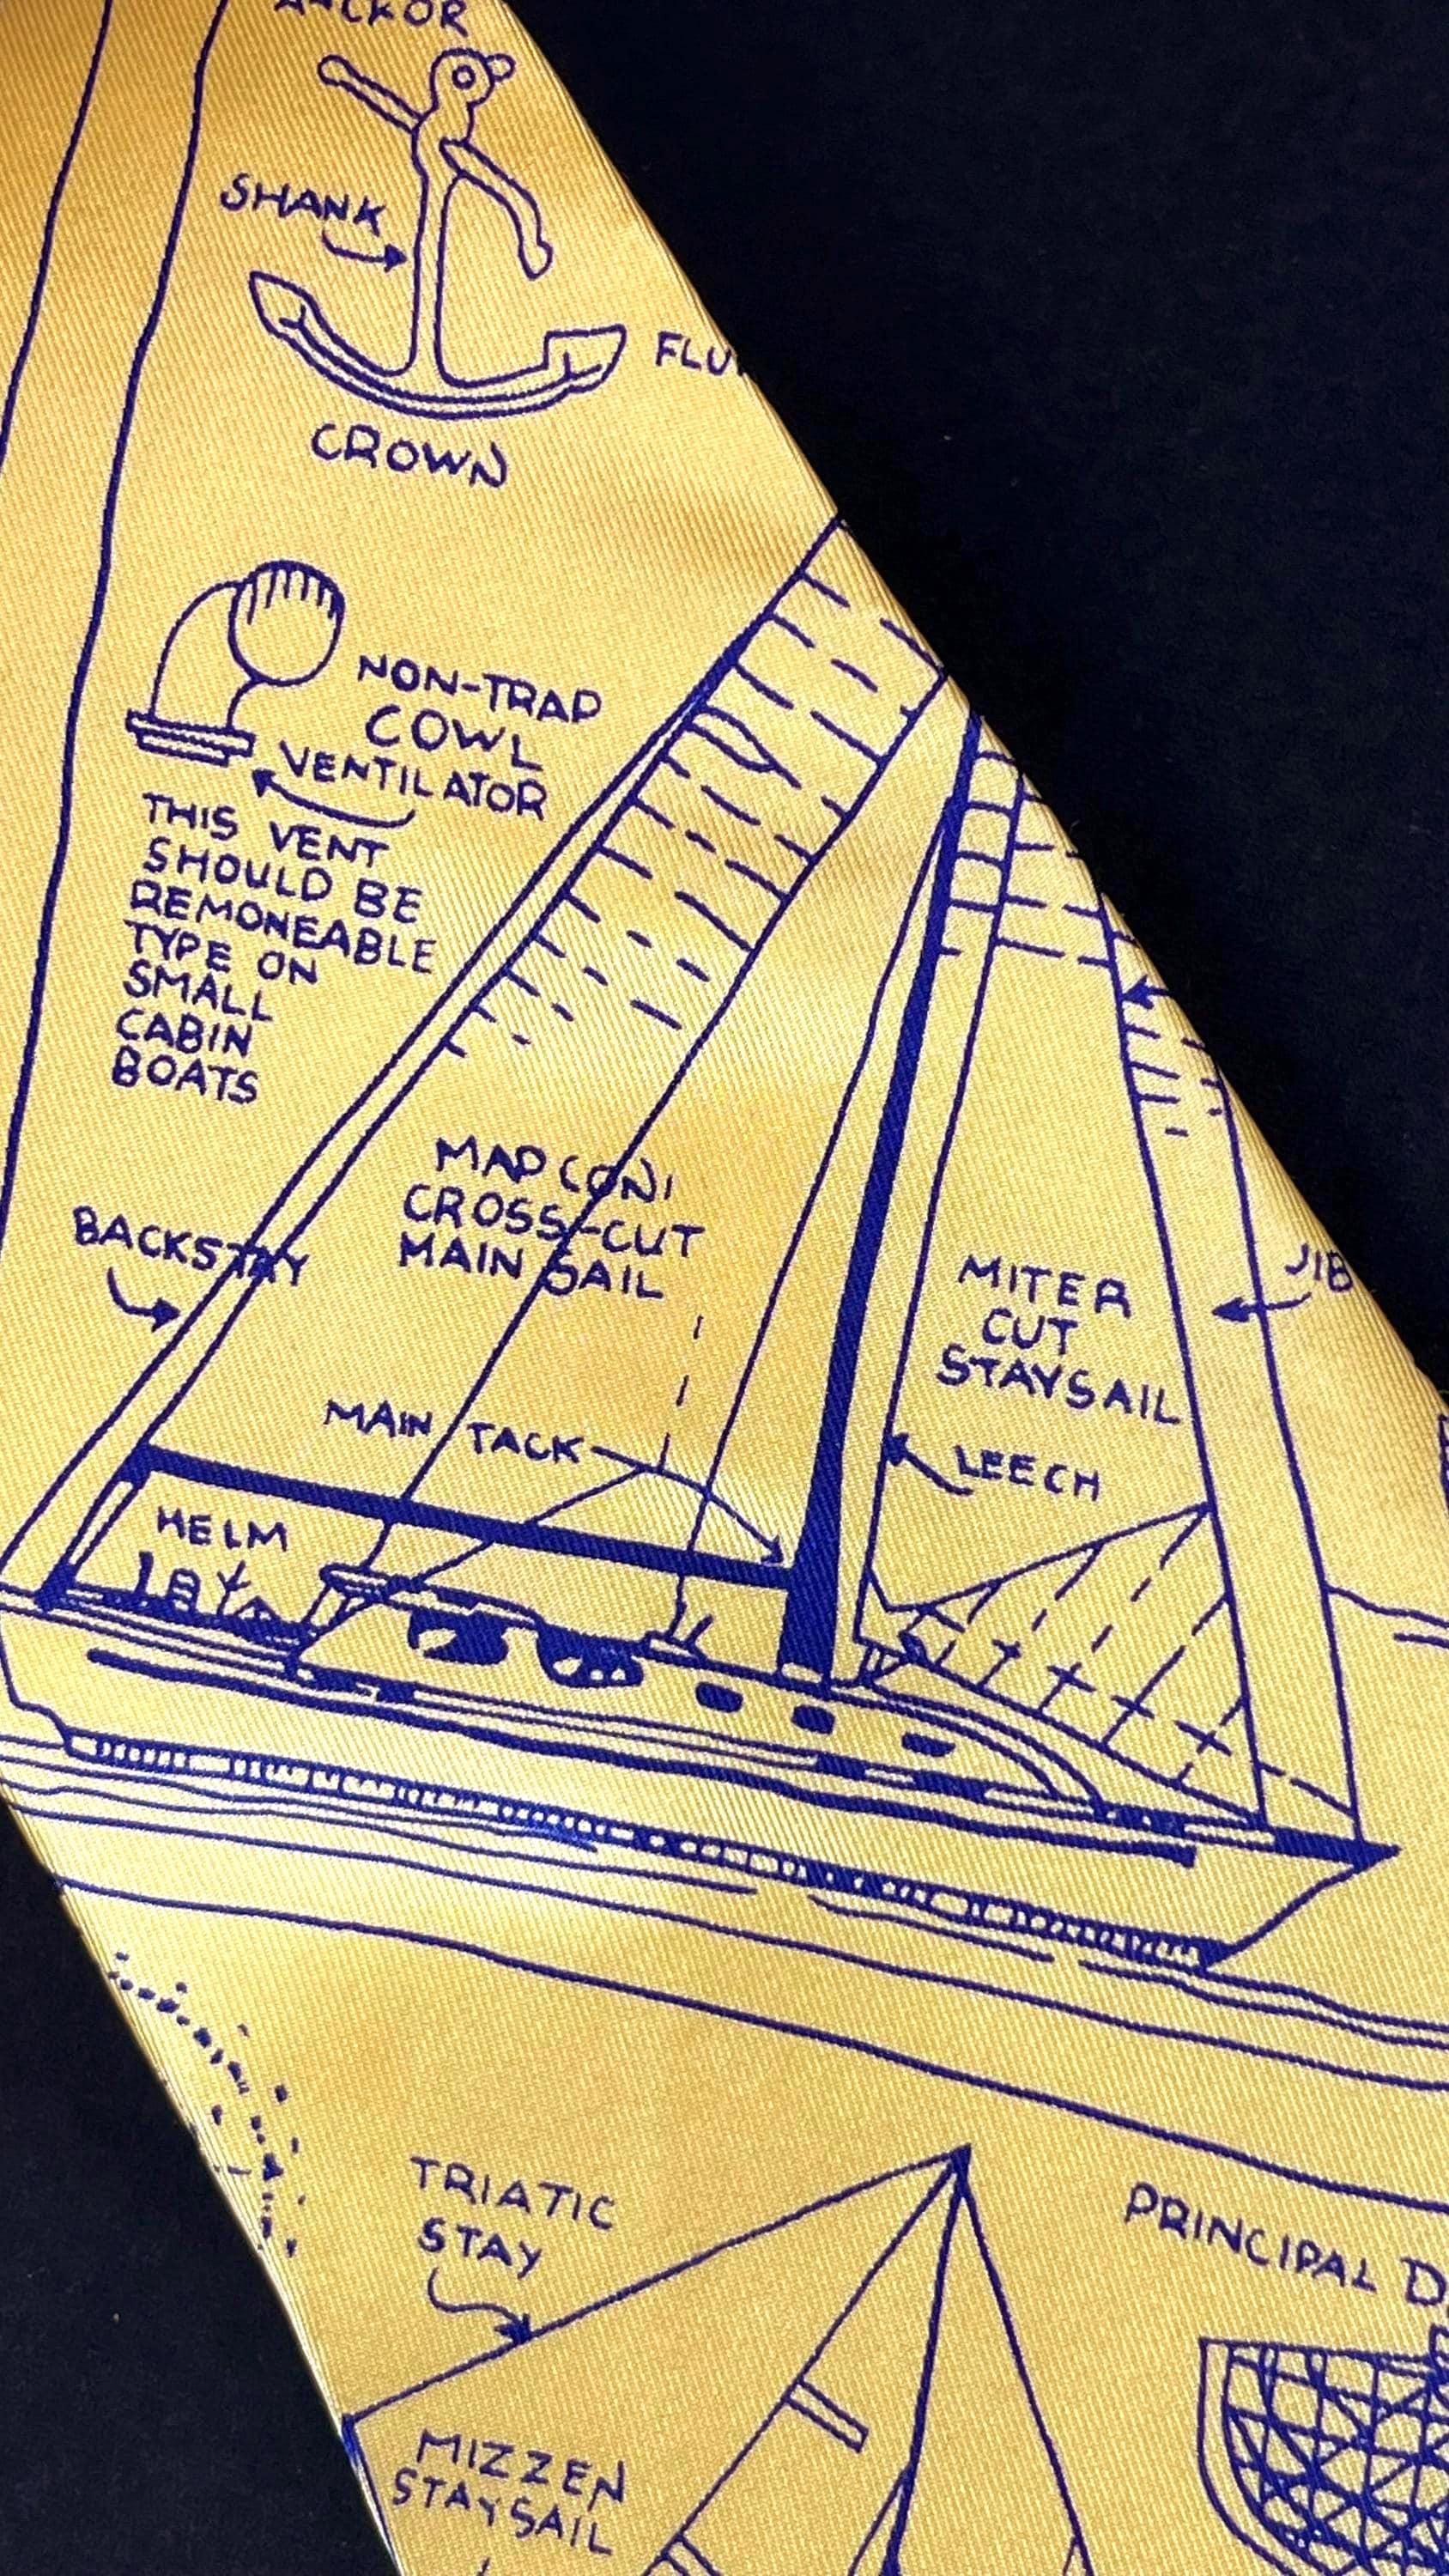 ANCKOR
SHANK
FLU
CROWN
NON-TRAP
COWL
VENTILATOR
THIS VENT
SHOULD BE
REMONEABLE
TYPE ON
SMALL
CABIN
BOATS
MAPCONI
CROSS-CUT
MAIN SAIL
BACKSTAY
JIB
MITER
CUT
STAYSAIL
MAIN TACK
LEECH
HELM
TRIATIC
STAY
PRINCIPAL D
MIZZEN
STAYSAIL